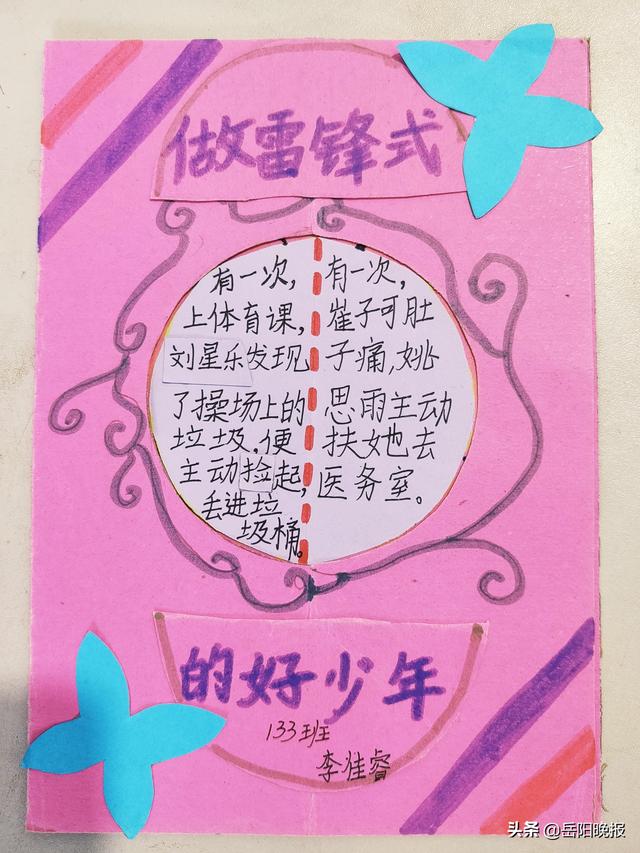 做雷锋式
有一次,
上体育课,
刘星乐发现
了操场上的
垃圾,便
主动捡起,
丢进垃
圾桶。
有一次,
崔子可肚
子痛,姚
思雨主动
扶她去
医务室。
的好少年
133班
李佳睿
头条 @岳阳晚报